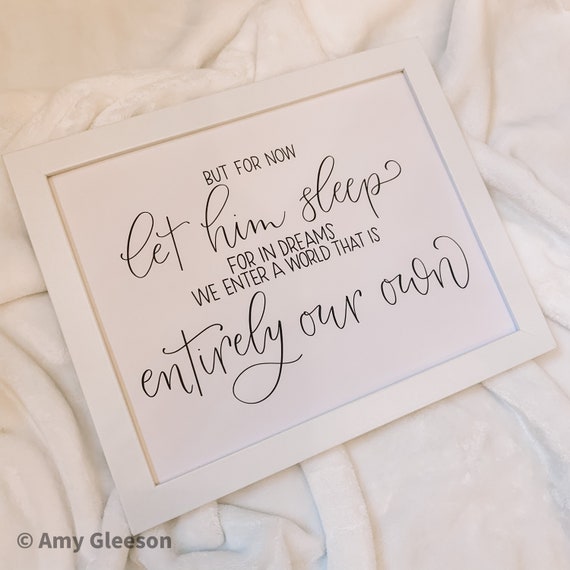 BUT FOR NOW
let him sleep
FOR IN DREAMS
WE ENTER A WORLD THAT IS
entirely our own
© Amy Gleeson